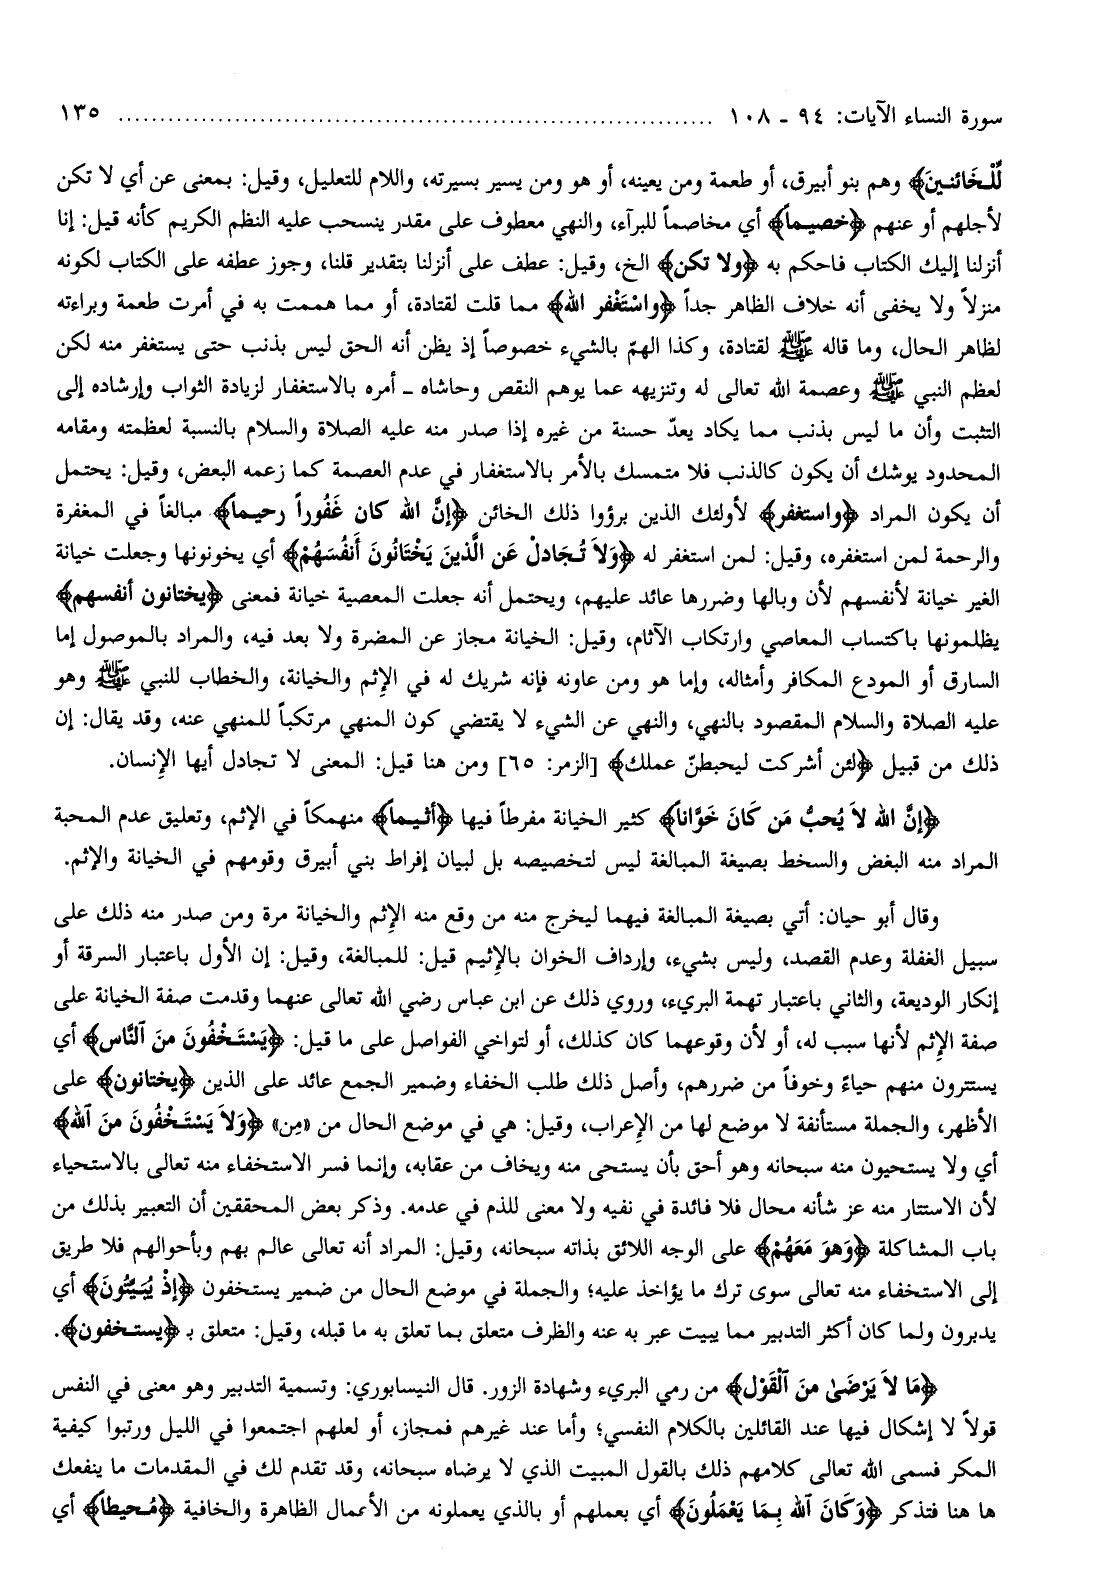 سورة النساء الآيات: ٩٤ ـ ١٠٨ ........................................................................ ١٣٥
لِّلْخَائنينَ﴾ وهم بنو أبيرق، أو طعمة ومن يعينه، أو هو ومن يسير بسيرته، واللام للتعليل، وقيل: بمعنى عن أي لا تكن
لأجلهم أو عنهم ﴿خصيماً﴾ أي مخاصماً للبرآء، والنهي معطوف على مقدر ينسحب عليه النظم الكريم كأنه قيل: إنا
أنزلنا إليك الكتاب فاحكم به ﴿ولا تكن﴾ الخ، وقيل: عطف على أنزلنا بتقدير قلنا، وجوز عطفه على الكتاب لكونه
منزلاً ولا يخفى أنه خلاف الظاهر جداً ﴿واسْتَغْفر الله﴾ مما قلت لقتادة، أو مما هممت به في أمرت طعمة وبراءته
لظاهر الحال، وما قاله ﷺ لقتادة، وكذا الهمّ بالشيء خصوصاً إذ يظن أنه الحق ليس بذنب حتى يستغفر منه لكن
لعظم النبي ﷺ وعصمة الله تعالى له وتنزيهه عما يوهم النقص وحاشاه ـ أمره بالاستغفار لزيادة الثواب وإرشاده إلى
التثبت وأن ما ليس بذنب مما يكاد يعدّ حسنة من غيره إذا صدر منه عليه الصلاة والسلام بالنسبة لعظمته ومقامه
المحدود يوشك أن يكون كالذنب فلا متمسك بالأمر بالاستغفار في عدم العصمة كما زعمه البعض، وقيل: يحتمل
أن يكون المراد ﴿واستغفر﴾ لأولئك الذين برؤوا ذلك الخائن ﴿إنَّ الله كان غَفُوراً رحيماً﴾ مبالغاً في المغفرة
والرحمة لمن استغفره، وقيل: لمن استغفر له ﴿وَلاَ تُجَادلْ عَن الَّذينَ يَخْتَانُونَ أَنفُسَهُمْ﴾ أي يخونونها وجعلت خيانة
الغير خيانة لأنفسهم لأن وبالها وضررها عائد عليهم، ويحتمل أنه جعلت المعصية خيانة فمعنى ﴿يختانون أنفسهم﴾
يظلمونها باكتساب المعاصي وارتكاب الآثام، وقيل: الخيانة مجاز عن المضرة ولا بعد فيه، والمراد بالموصول إما
السارق أو المودع المكافر وأمثاله، وإما هو ومن عاونه فإنه شريك له في الإثم والخيانة، والخطاب للنبي ﷺ وهو
عليه الصلاة والسلام المقصود بالنهي، والنهي عن الشيء لا يقتضي كون المنهي مرتكباً للمنهي عنه، وقد يقال: إن
ذلك من قبيل ﴿لئن أشركت ليحبطنّ عملك﴾ [الزمر: ٦٥] ومن هنا قيل: المعنى لا تجادل أيها الإنسان.
﴿إنَّ الله لاَ يُحبُّ مَن كَانَ خَوَّاناً﴾ كثير الخيانة مفرطاً فيها ﴿أثيماً﴾ منهمكاً في الإثم، وتعليق عدم المحبة
المراد منه البغض والسخط بصيغة المبالغة ليس لتخصيصه بل لبيان إفراط بني أبيرق وقومهم في الخيانة والإثم.
وقال أبو حيان: أتي بصيغة المبالغة فيهما ليخرج منه من وقع منه الإثم والخيانة مرة ومن صدر منه ذلك على
سبيل الغفلة وعدم القصد، وليس بشيء، وإرداف الخوان بالإثيم قيل: للمبالغة، وقيل: إن الأول باعتبار السرقة أو
إنكار الوديعة، والثاني باعتبار تهمة البريء، وروي ذلك عن ابن عباس رضي الله تعالى عنهما وقدمت صفة الخيانة على
صفة الإثم لأنها سبب له، أو لأن وقوعهما كان كذلك، أو لتواخي الفواصل على ما قيل: ﴿يَسْتَخْفُونَ منَ ٱلنَّاس﴾ أي
يستترون منهم حياءً وخوفاً من ضررهم، وأصل ذلك طلب الخفاء وضمير الجمع عائد على الذين ﴿يختانون﴾ على
الأظهر، والجملة مستأنفة لا موضع لها من الإعراب، وقيل: هي في موضع الحال من «مِن» ﴿وَلاَ يَسْتَخْفُونَ منَ ٱلله﴾
أي ولا يستحيون منه سبحانه وهو أحق بأن يستحى منه ويخاف من عقابه، وإنما فسر الاستخفاء منه تعالى بالاستحياء
لأن الاستتار منه عز شأنه محال فلا فائدة في نفيه ولا معنى للذم في عدمه. وذكر بعض المحققين أن التعبير بذلك من
باب المشاكلة ﴿وَهوَ مَعَهُمْ﴾ على الوجه اللائق بذاته سبحانه، وقيل: المراد أنه تعالى عالم بهم وبأحوالهم فلا طريق
إلى الاستخفاء منه تعالى سوى ترك ما يؤاخذ عليه؛ والجملة في موضع الحال من ضمير يستخفون ﴿إذْ يُبَيِّتُونَ﴾ أي
يدبرون ولما كان أكثر التدبير مما يبيت عبر به عنه والظرف متعلق بما تعلق به ما قبله، وقيل: متعلق بـ ﴿يستخفون﴾.
﴿مَا لاَ يَرْضَىٰ منَ ٱلْقَوْل﴾ من رمي البريء وشهادة الزور. قال النيسابوري: وتسمية التدبير وهو معنى في النفس
قولاً لا إشكال فيها عند القائلين بالكلام النفسي؛ وأما عند غيرهم فمجاز، أو لعلهم اجتمعوا في الليل ورتبوا كيفية
المكر فسمى الله تعالى كلامهم ذلك بالقول المبيت الذي لا يرضاه سبحانه، وقد تقدم لك في المقدمات ما ينفعك
ها هنا فتذكر ﴿وَكَانَ ٱلله بِمَا يَعْمَلُونَ﴾ أي بعملهم أو بالذي يعملونه من الأعمال الظاهرة والخافية ﴿مُحيطاً﴾ أي